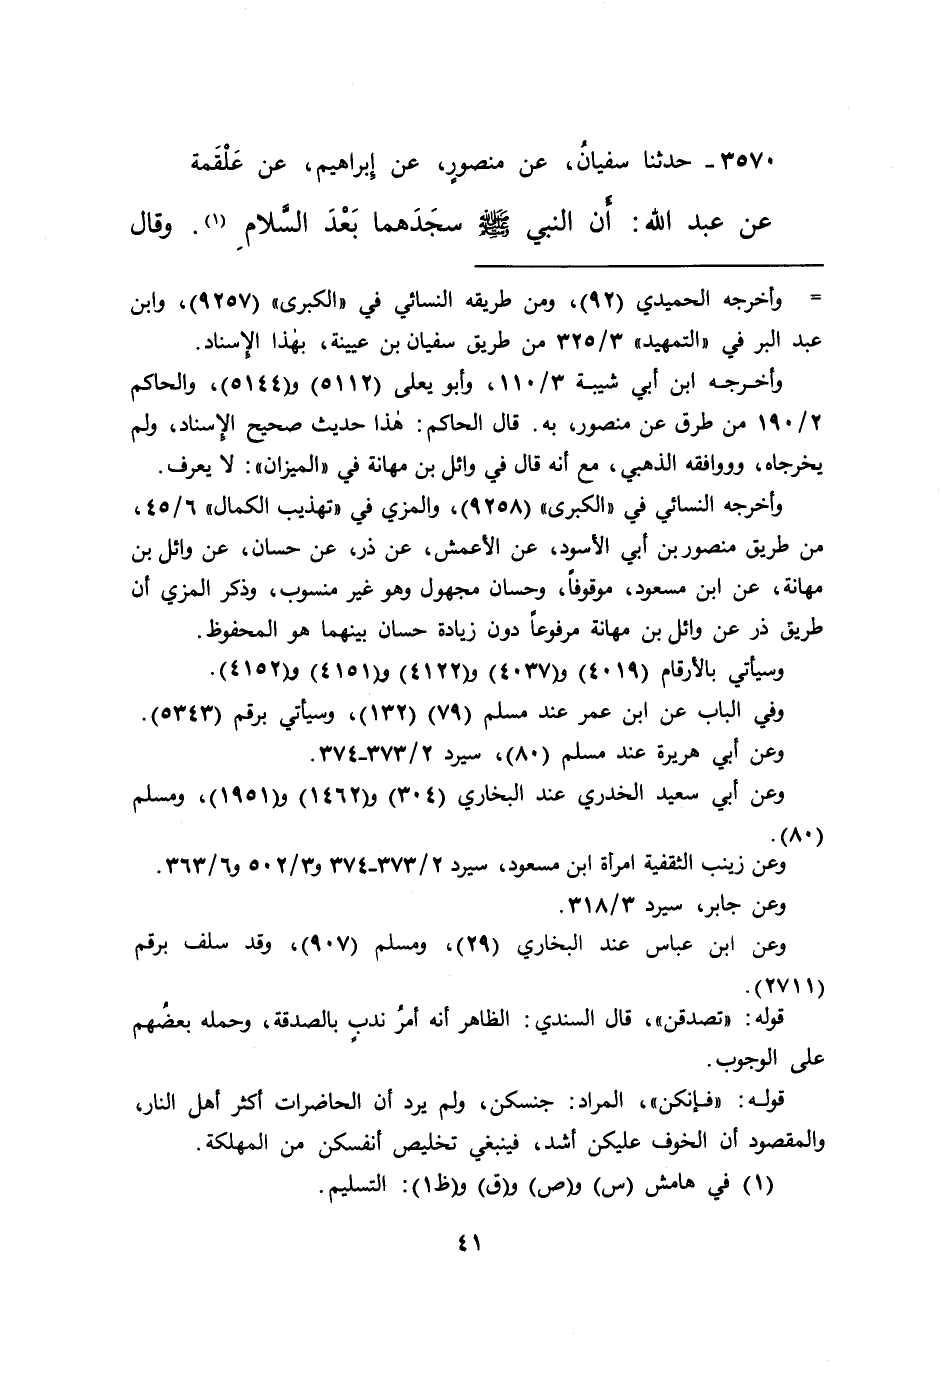 ٣٥٧٠ـ حدثنا سفيانُ، عن منصورٍ، عن إبراهيم، عن عَلْقَمة
عن عبد الله: أَن النبي ﷺ سجَدَهما بَعْدَ السَّلامِ (١). وقال
= وأخرجه الحميدي (٩٢)، ومن طريقه النسائي في «الكبرى» (٩٢٥٧)، وابن
عبد البر في «التمهيد» ٣٢٥/٣ من طريق سفيان بن عيينة، بهٰذا الإِسناد.
وأخـرجـه ابن أبي شيبـة ١١٠/٣، وأبو يعلى (٥١١٢) و(٥١٤٤)، والحاكم
١٩٠/٢ من طرق عن منصور، به. قال الحاكم: هٰذا حديث صحيح الإِسناد، ولم
يخرجاه، وووافقه الذهبي، مع أنه قال في وائل بن مهانة في «الميزان»: لا يعرف.
وأخرجه النسائي في «الكبرى» (٩٢٥٨)، والمزي في «تهذيب الكمال» ٤٥/٦،
من طريق منصور بن أبي الأسود، عن الأعمش، عن ذر، عن حسان، عن وائل بن
مهانة، عن ابن مسعود، موقوفاً، وحسان مجهول وهو غير منسوب، وذكر المزي أن
طريق ذر عن وائل بن مهانة مرفوعاً دون زيادة حسان بينهما هو المحفوظ.
وسيأتي بالأرقام (٤٠١٩) و(٤٠٣٧) و(٤١٢٢) و(٤١٥١) و(٤١٥٢).
وفي الباب عن ابن عمر عند مسلم (٧٩) (١٣٢)، وسيأتي برقم (٥٣٤٣).
وعن أبي هريرة عند مسلم (٨٠)، سيرد ٣٧٣/٢ـ٣٧٤.
وعن أبي سعيد الخدري عند البخاري (٣٠٤) و(١٤٦٢) و(١٩٥١)، ومسلم
(٨٠).
وعن زينب الثقفية امرأة ابن مسعود، سيرد ٣٧٣/٢ـ٣٧٤ و٥٠٢/٣ و٣٦٣/٦.
وعن جابر، سيرد ٣١٨/٣.
وعن ابن عباس عند البخاري (٢٩)، ومسلم (٩٠٧)، وقد سلف برقم
(٢٧١١).
قوله: «تصدقن»، قال السندي: الظاهر أنه أمرُ ندبٍ بالصدقة، وحمله بعضُهم
على الوجوب.
قولـه: «فـإنكن»، المراد: جنسكن، ولم يرد أن الحاضرات أكثر أهل النار،
والمقصود أن الخوف عليكن أشد، فينبغي تخليص أنفسكن من المهلكة.
(١) في هامش (س) و(ص) و(ق) و(ظ١): التسليم.
٤١